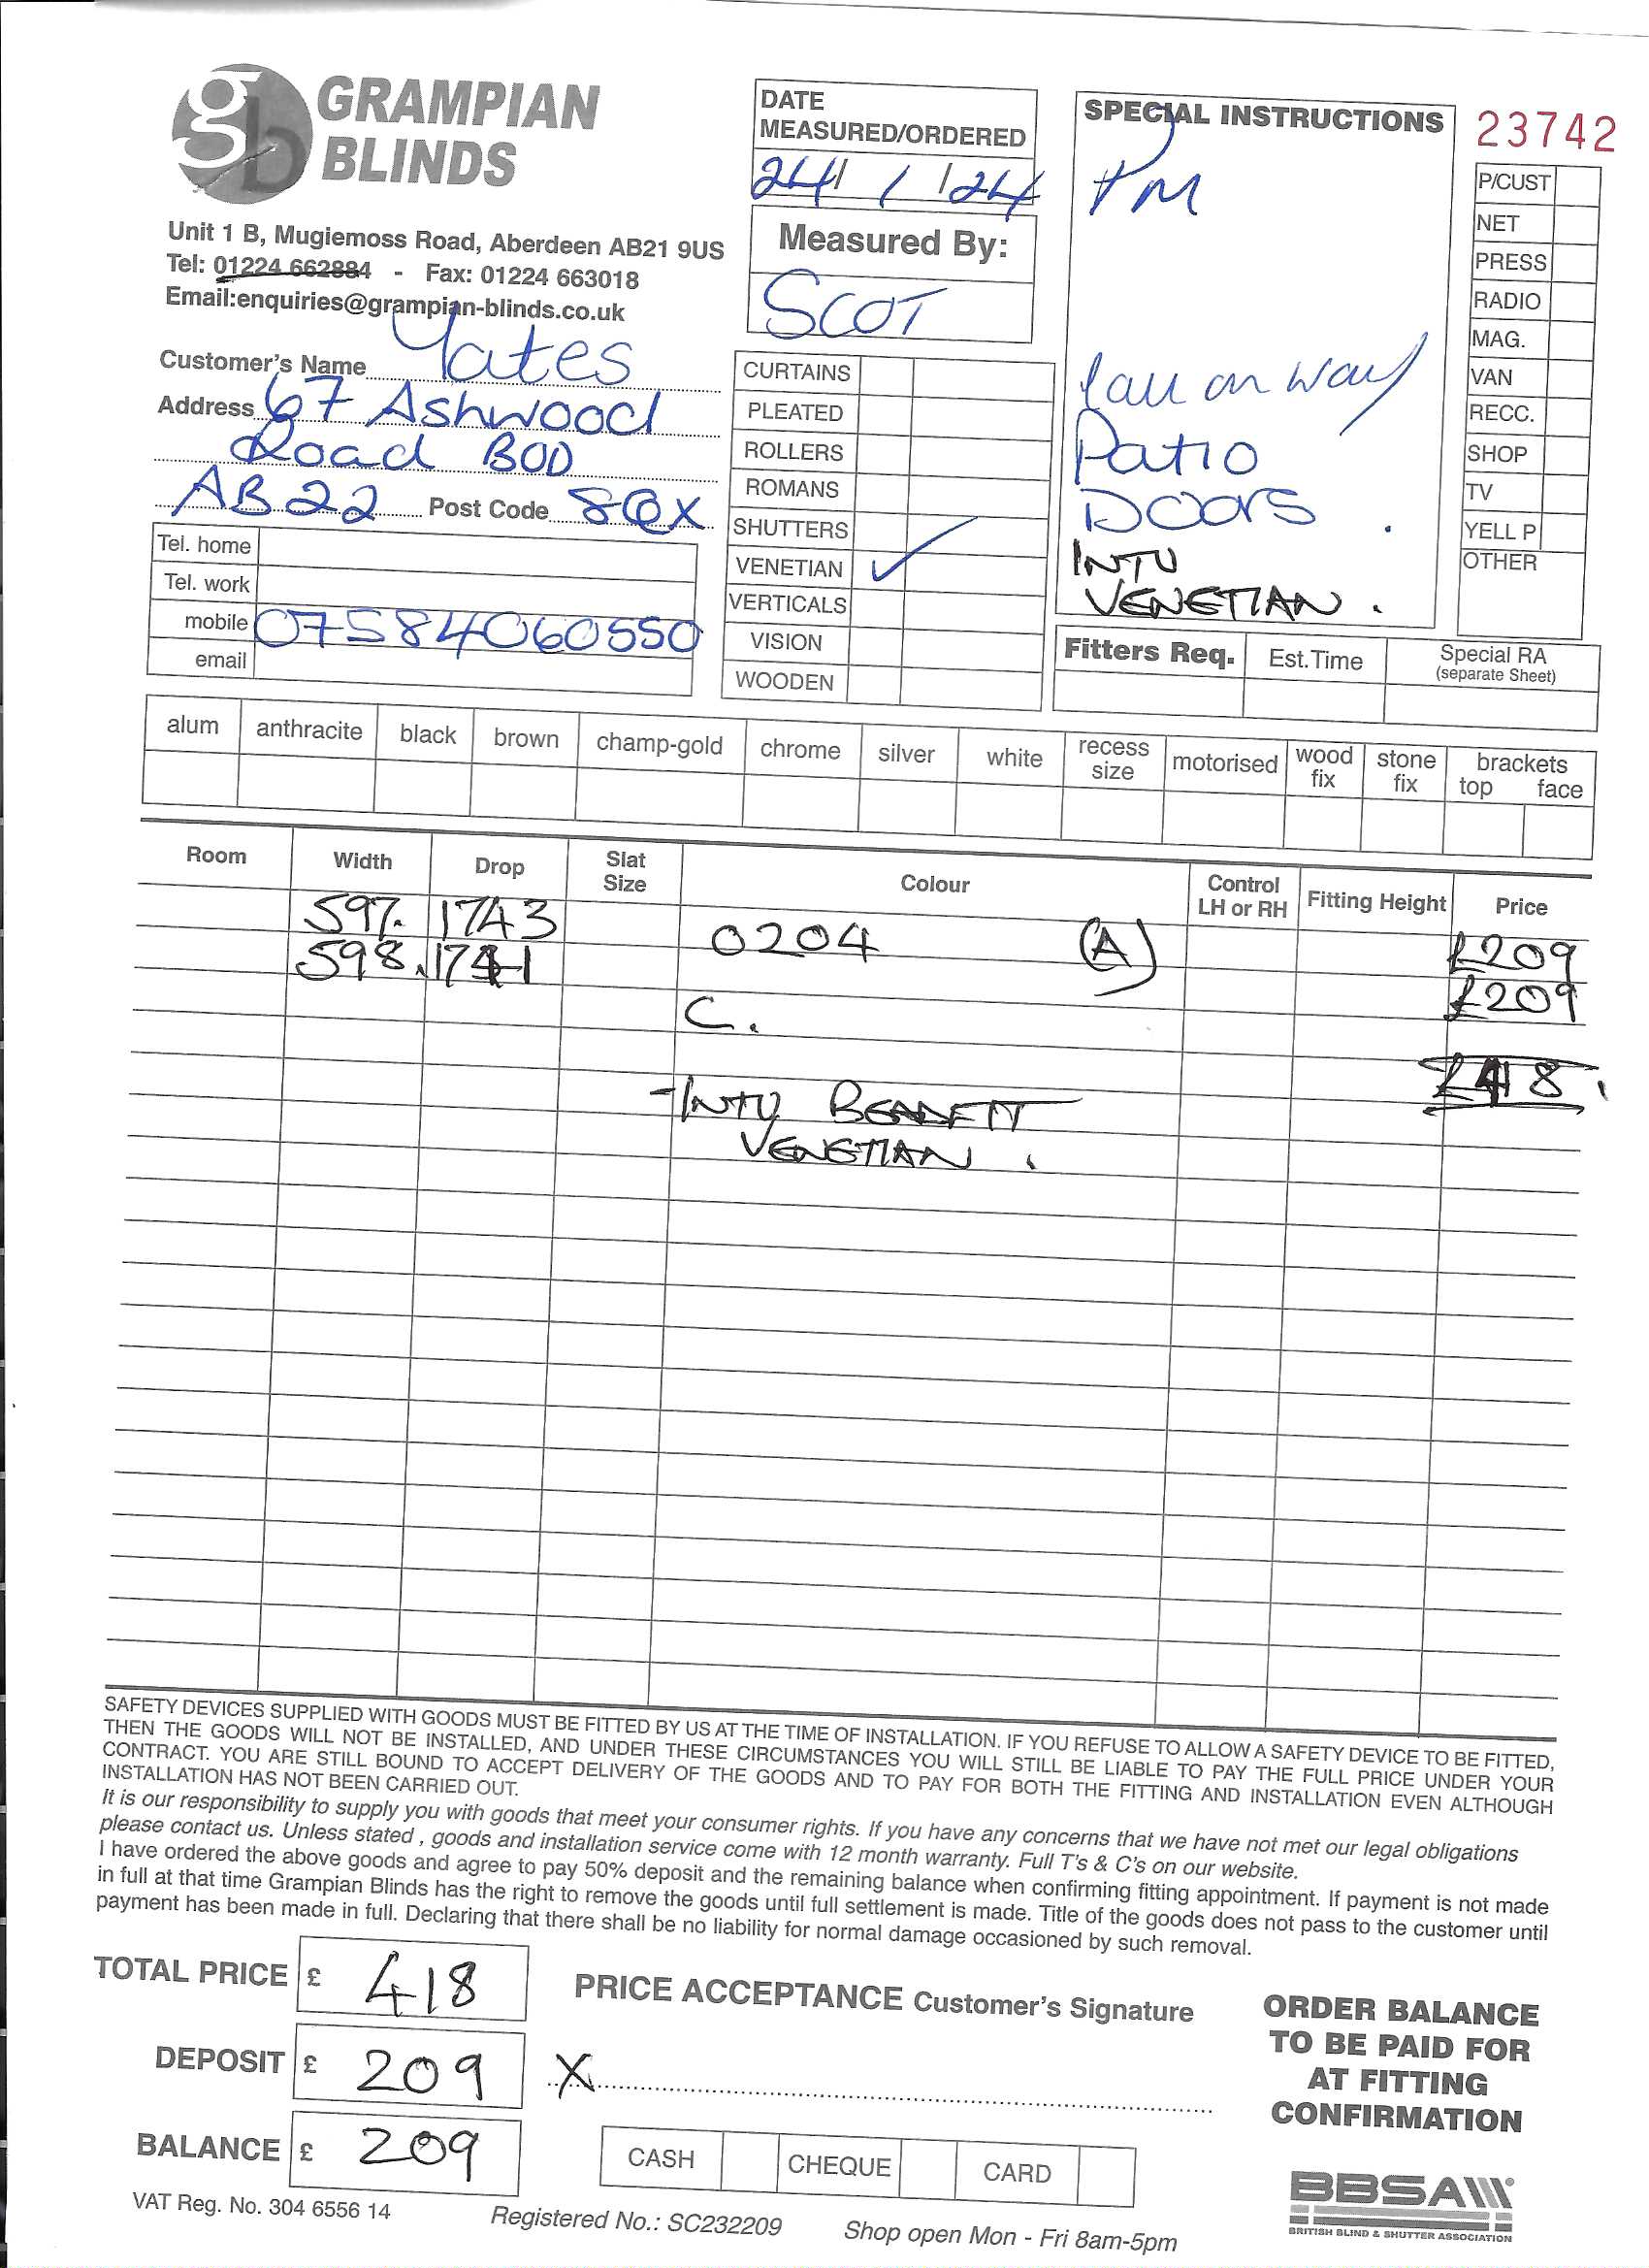 GRAMPIAN
BLINDS
Unit 1 B, Mugiemoss Road, Aberdeen AB21 9US
Tel: 01224 662884 - Fax: 01224 663018
Email:enquiries@grampian-blinds.co.uk
DATE
MEASURED/ORDERED
24/1/24
Measured By:
SCOT
SPECIAL INSTRUCTIONS
PM
Call on way
Patio
Doors.
INTU
VENETIAN.
23742
P/CUST
NET
PRESS
RADIO
MAG.
VAN
RECC.
SHOP
TV
YELL P
OTHER
Customer's Name Yates
Address 67 Ashwood
Road BOD
AB22 Post Code 8QX
Tel. home
Tel. work
mobile 07584060550
email
CURTAINS
PLEATED
ROLLERS
ROMANS
SHUTTERS
VENETIAN ✓
VERTICALS
VISION
WOODEN
Fitters Req. Est.Time Special RA
(separate Sheet)
alum anthracite black brown champ-gold chrome silver white recess size motorised wood fix stone fix brackets top face
Room Width Drop Slat Size Colour Control LH or RH Fitting Height Price
597. 1743 0204 (A) £209
598. 1741 £209
C.
£418.
-INTU BENEFIT
VENETIAN.
SAFETY DEVICES SUPPLIED WITH GOODS MUST BE FITTED BY US AT THE TIME OF INSTALLATION. IF YOU REFUSE TO ALLOW A SAFETY DEVICE TO BE FITTED,
THEN THE GOODS WILL NOT BE INSTALLED, AND UNDER THESE CIRCUMSTANCES YOU WILL STILL BE LIABLE TO PAY THE FULL PRICE UNDER YOUR
CONTRACT. YOU ARE STILL BOUND TO ACCEPT DELIVERY OF THE GOODS AND TO PAY FOR BOTH THE FITTING AND INSTALLATION EVEN ALTHOUGH
INSTALLATION HAS NOT BEEN CARRIED OUT.
It is our responsibility to supply you with goods that meet your consumer rights. If you have any concerns that we have not met our legal obligations
please contact us. Unless stated , goods and installation service come with 12 month warranty. Full T's & C's on our website.
I have ordered the above goods and agree to pay 50% deposit and the remaining balance when confirming fitting appointment. If payment is not made
in full at that time Grampian Blinds has the right to remove the goods until full settlement is made. Title of the goods does not pass to the customer until
payment has been made in full. Declaring that there shall be no liability for normal damage occasioned by such removal.
TOTAL PRICE £ 418
DEPOSIT £ 209
BALANCE £ 209
PRICE ACCEPTANCE Customer's Signature
X
CASH CHEQUE CARD
ORDER BALANCE
TO BE PAID FOR
AT FITTING
CONFIRMATION
VAT Reg. No. 304 6556 14
Registered No.: SC232209
Shop open Mon - Fri 8am-5pm
BBSA
BRITISH BLIND & SHUTTER ASSOCIATION